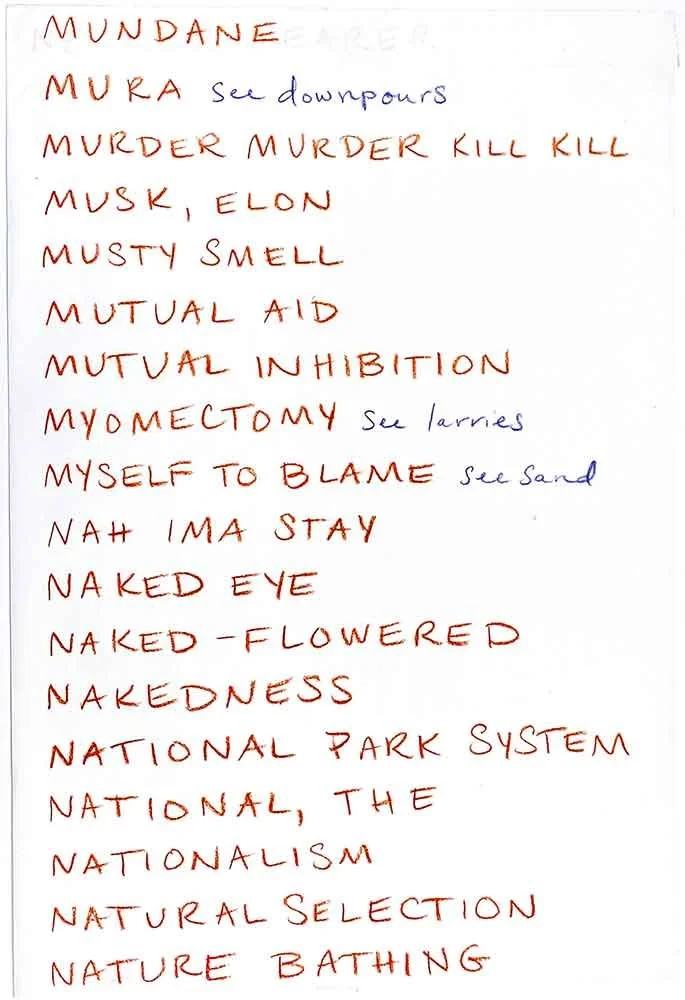 MUNDANE
MURA see downpours
MURDER MURDER KILL KILL
MUSK, ELON
MUSTY SMELL
MUTUAL AID
MUTUAL INHIBITION
MYOMECTOMY see larries
MYSELF TO BLAME see sand
NAH IMA STAY
NAKED EYE
NAKED-FLOWERED
NAKEDNESS
NATIONAL PARK SYSTEM
NATIONAL, THE
NATIONALISM
NATURAL SELECTION
NATURE BATHING